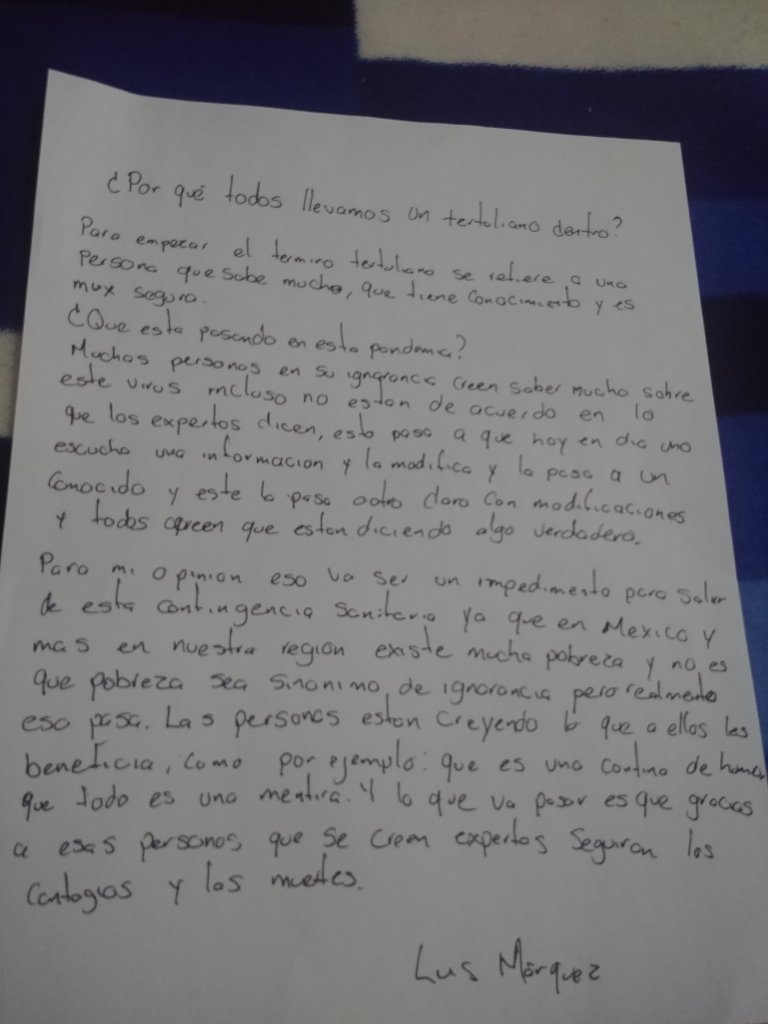 ¿Por qué todos llevamos un tertuliano dentro?
Para empezar el termino tertuliano se refiere a una
persona que sabe mucho, que tiene conocimiento y es
muy segura.
¿Que esta pasando en esta pandemia?
Muchas personas en su ignorancia creen saber mucho sobre
este virus incluso no estan de acuerdo en lo
que los expertos dicen, esto pasa a que hoy en dia uno
escucha una informacion y la modifica y lo pasa a un
conocido y este lo pasa a otro claro con modificaciones
y todos creen que estan diciendo algo verdadero.
Para mi opinion eso va ser un impedimento para salir
de esta contingencia sanitaria ya que en Mexico y
mas en nuestra region existe mucha pobreza y no es
que pobreza sea sinonimo de ignorancia pero realmente
eso pasa. Las personas estan creyendo lo que a ellos les
beneficia, como por ejemplo: que es una cortina de humo
que todo es una mentira. Y lo que va pasar es que gracias
a esas personas que se creen expertos seguiran los
contagios y las muertes.
Luis Márquez